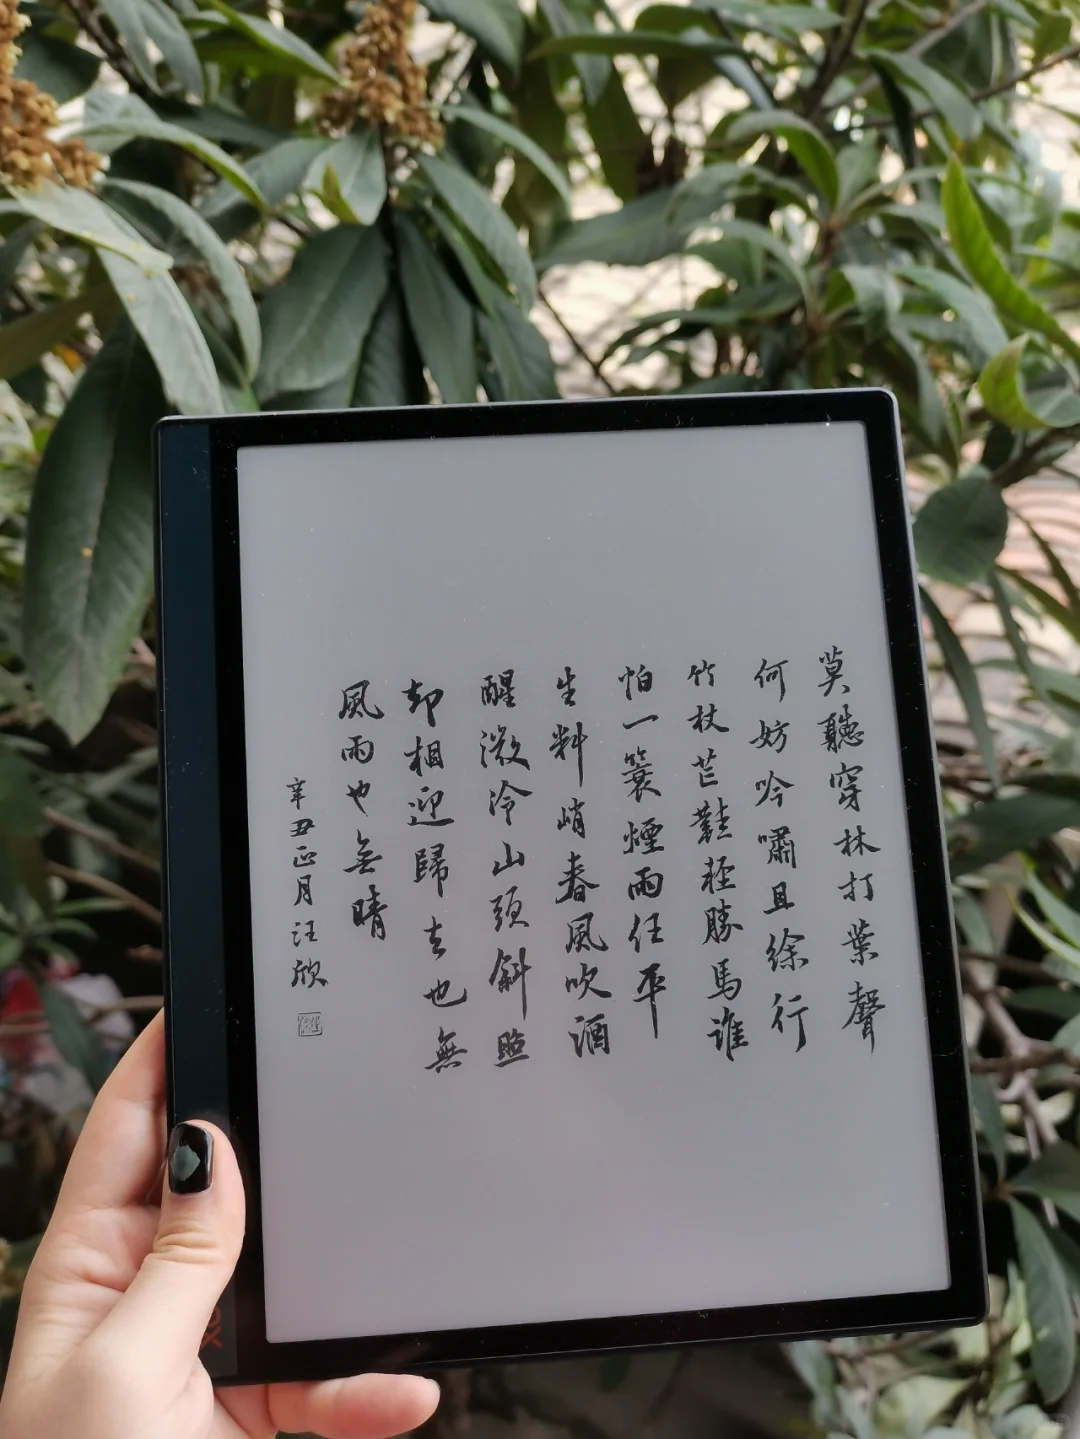 莫聽穿林打葉聲
何妨吟嘯且徐行
竹杖芒鞵輕勝馬誰
怕一簑煙雨任平
生料峭春風吹酒
醒微冷山頭斜照
却相迎歸去也無
風雨也無晴
辛丑正月汪欣